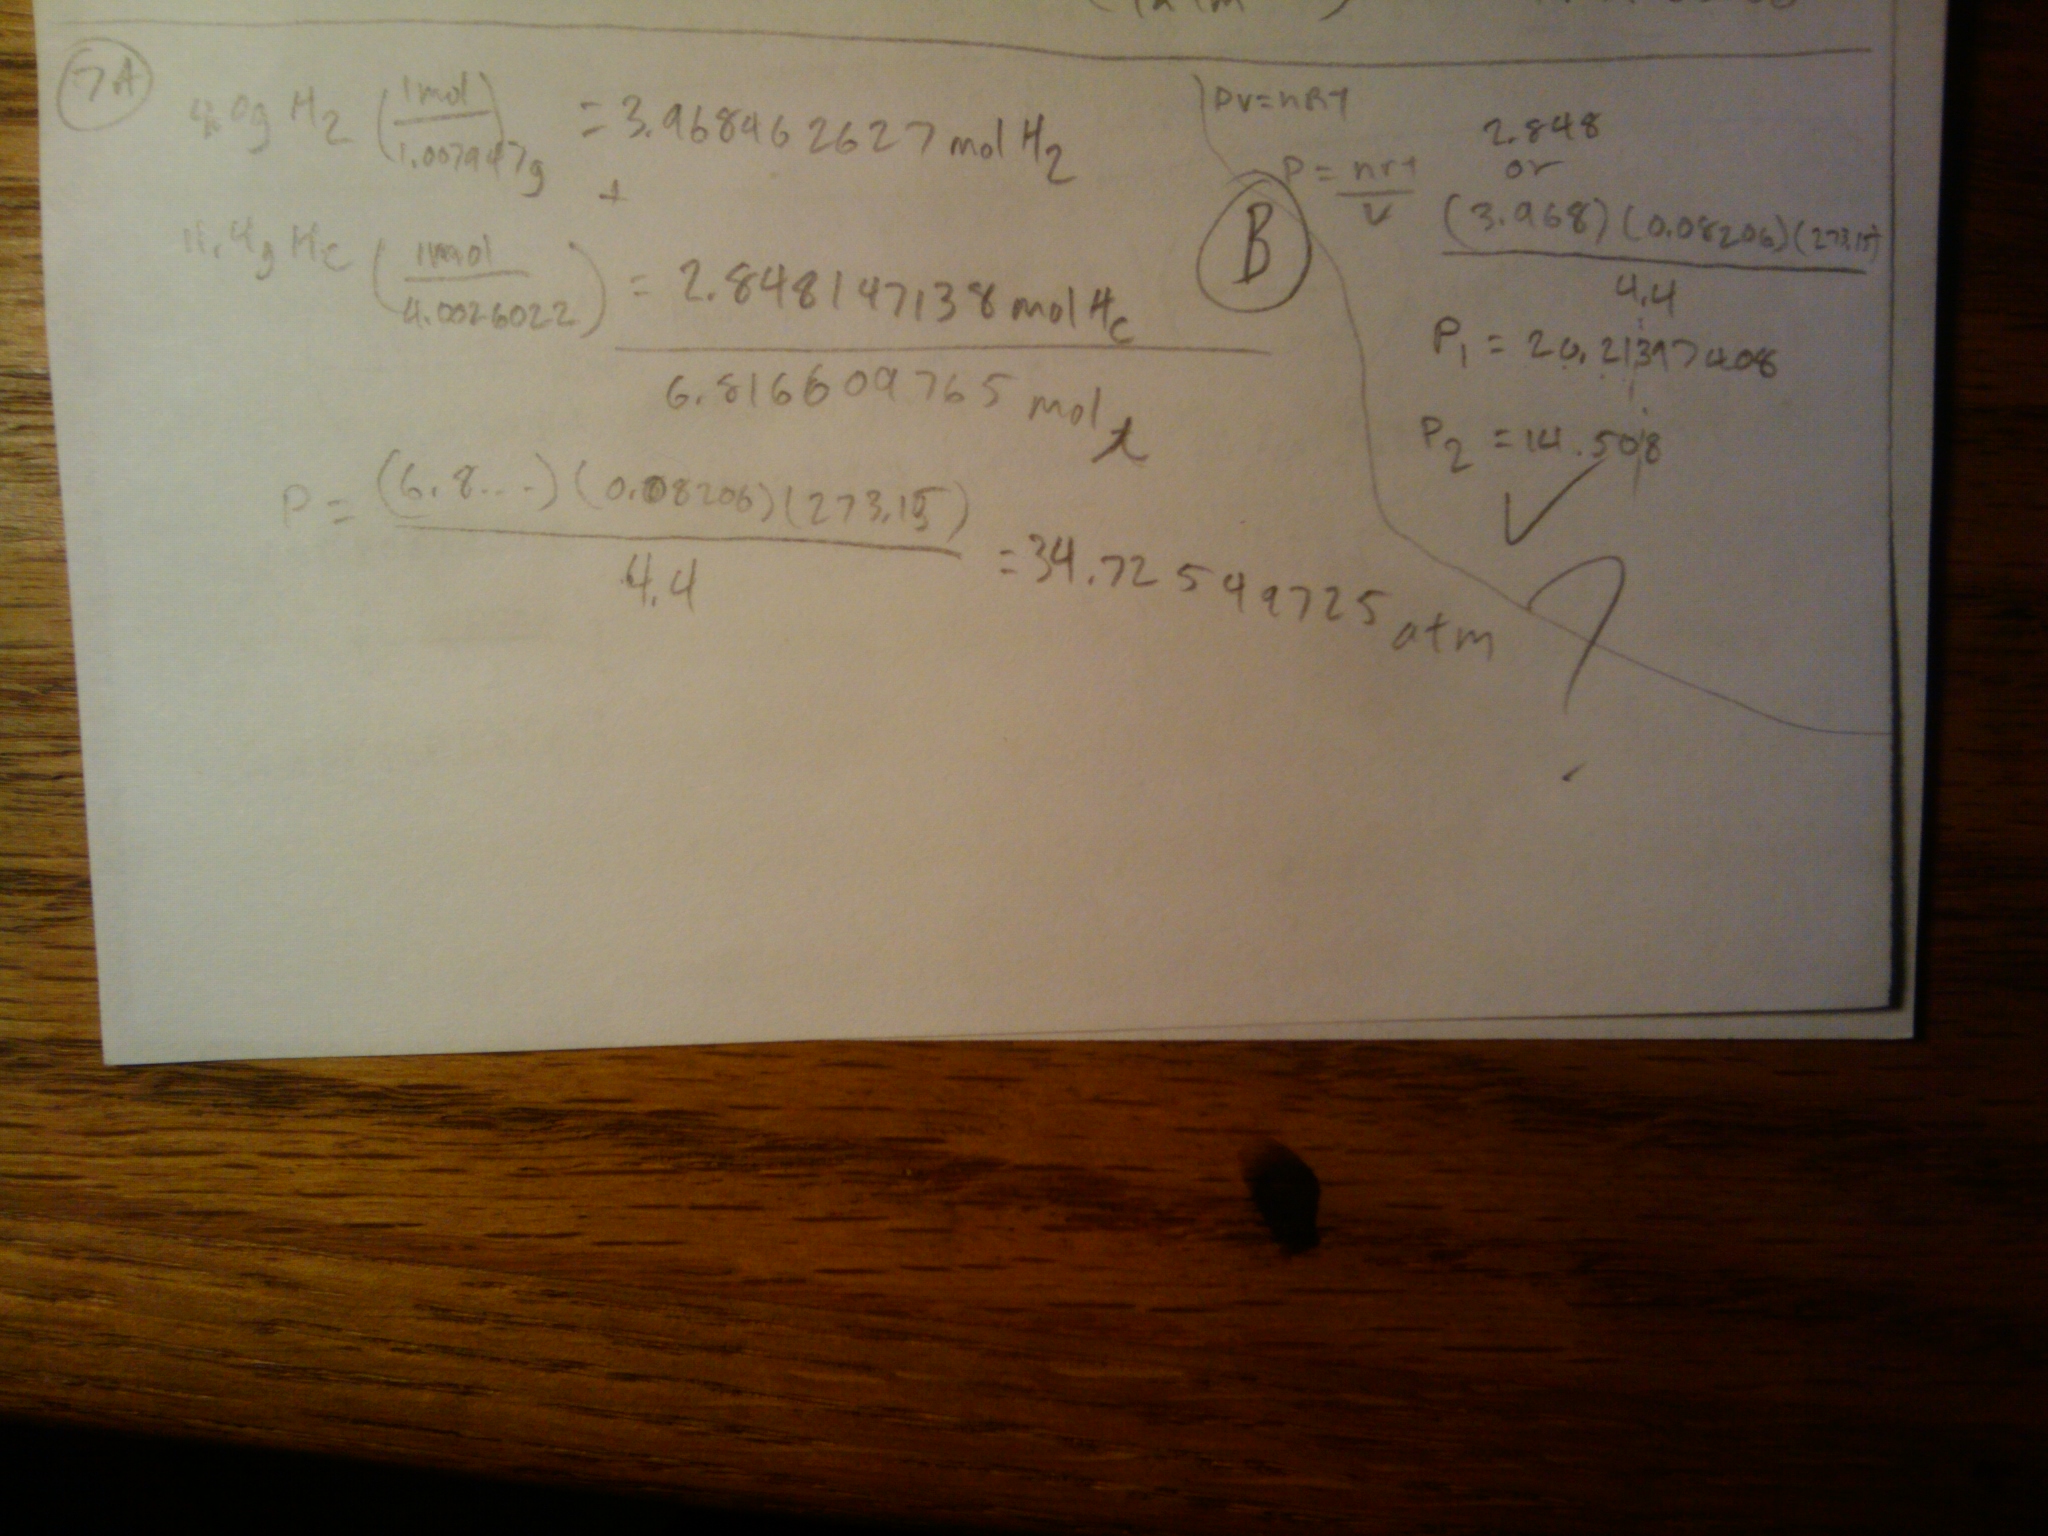 7A
4.0g H2 (1mol / 1.007947g) = 3.968462627 mol H2
+
11.4g He (1mol / 4.0026022) = 2.848147138 mol He
6.816609765 mol t
P = (6.8...)(0.08206)(273.15) / 4.4 = 34.72549725 atm
B
PV=nRT
P = nrt / V
2.848
or
(3.968)(0.08206)(273.15)
4.4
P1 = 20.21397408
P2 = 14.508
?